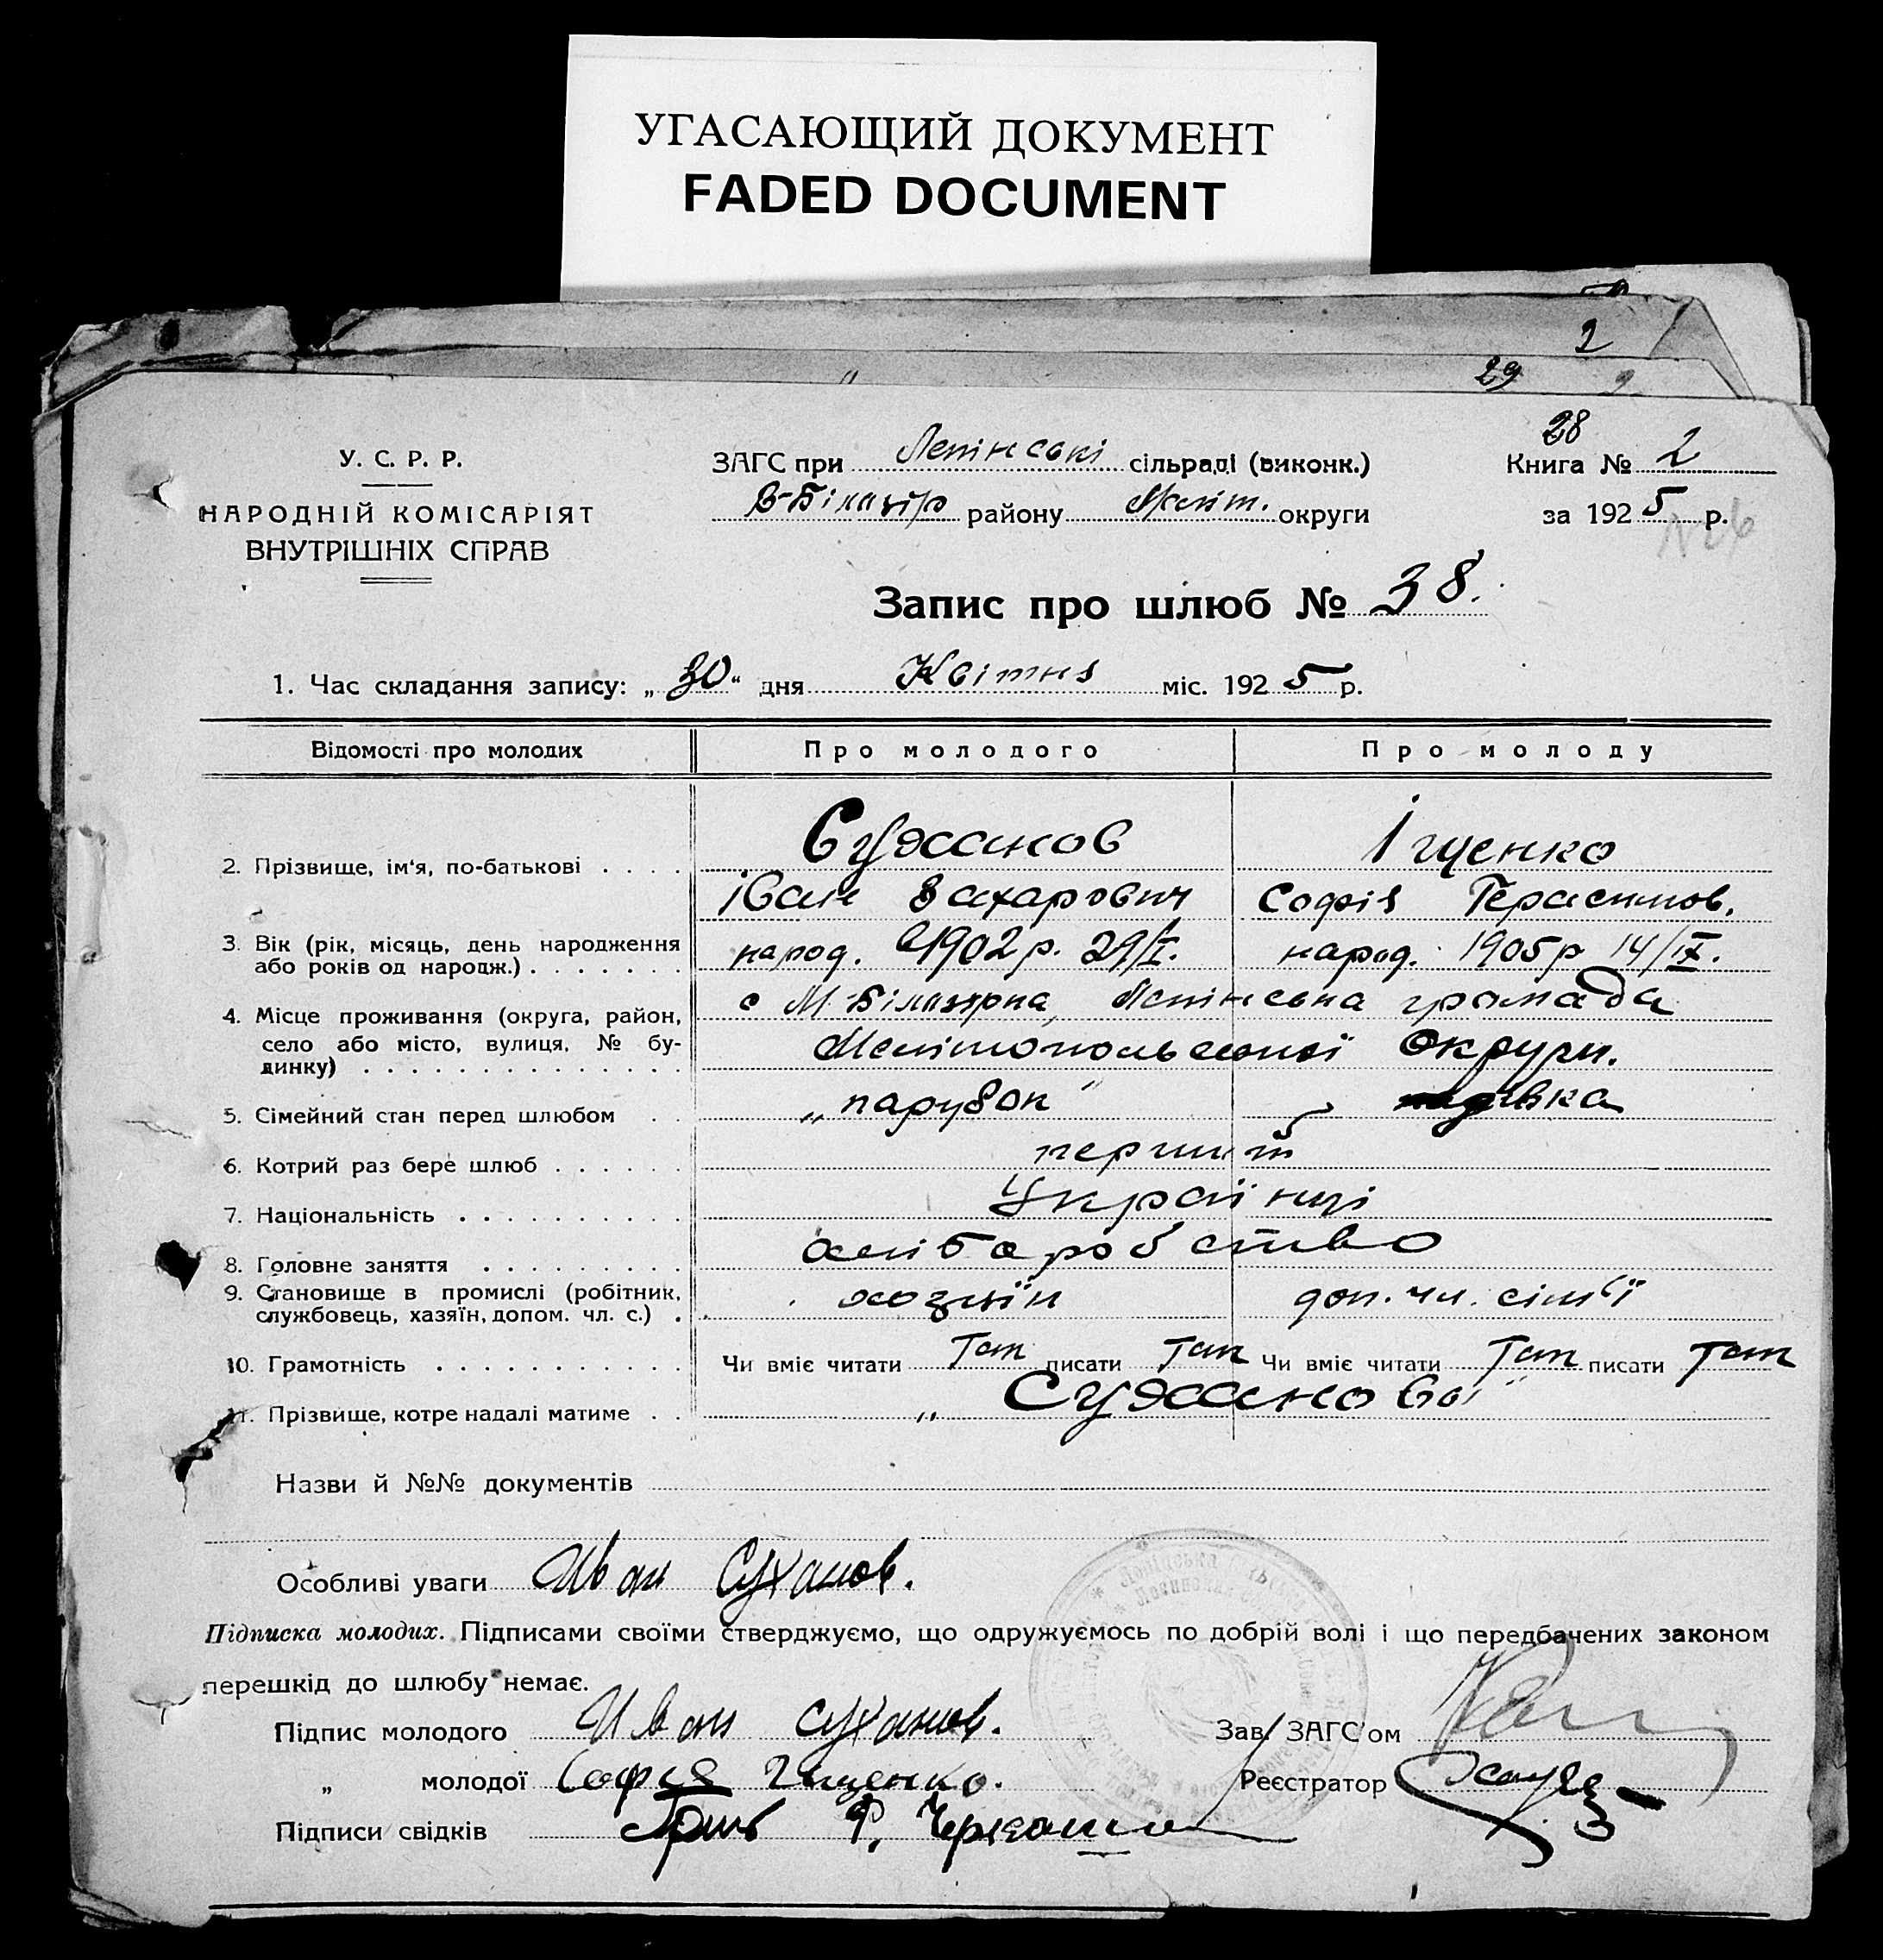 УГАСАЮЩИЙ ДОКУМЕНТ
FADED DOCUMENT
2
29
28
У. С. Р. Р.
НАРОДНІЙ КОМІСАРІЯТ
ВНУТРІШНІХ СПРАВ
ЗАГС при Ленінські сільраді (виконк.)
В-Білозір району Меліт. округи
Книга № 2
за 1925 р.
Запис про шлюб № 38.
1. Час складання запису: „30“ дня Квітня міс. 1925 р.
Відомості про молодих Про молодого Про молоду
2. Прізвище, ім'я, по-батькові . . . . Суханов Іщенко
Іван Захарович Софія Герасимов.
3. Вік (рік, місяць, день народження або років од народж.) . . . . . . . народ. 1902 р. 29/I. народ. 1905 р 14/IX.
4. Місце проживання (округа, район, село або місто, вулиця, № будинку) . . . . . . . . . . . . . . с М-Білозірка, Ленінська громада
Мелітопольської Округи.
5. Сімейний стан перед шлюбом . . „парубок" дівка
6. Котрий раз бере шлюб . . . . . . перший
7. Національність . . . . . . . . . . Українці
8. Головне заняття . . . . . . . . . хліборобство
9. Становище в промислі (робітник, службовець, хазяїн, допом. чл. с.) . . хозяїн доп. чл. сім'ї
10. Грамотність . . . . . . . . . . . Чи вміє читати Так писати Так Чи вміє читати Так писати Так
11. Прізвище, котре надалі матиме . . „ Суханови"
Назви й №№ документів
Особливі уваги Иван Суханов.
Підписка молодих. Підписами своїми стверджуємо, що одружуємось по добрій волі і що передбачених законом
перешкід до шлюбу немає.
Підпис молодого Иван Суханов. Зав. ЗАГС'ом
„ молодої София Ищенко. Реєстратор
Підписи свідків Ф. Черкаши